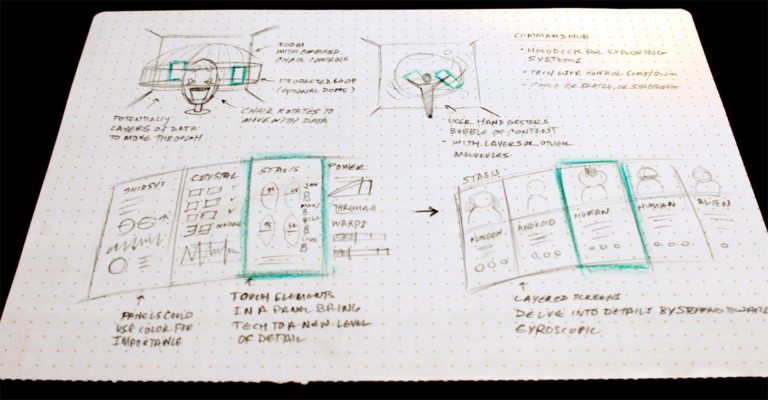 ROOM
WITH COMMAND
CHAIR CONTROLS
PROJECTED LOOP
(OPTIONAL DOME)
POTENTIALLY
LAYERS OF DATA
TO MOVE THROUGH
CHAIR ROTATES TO
MOVE WITH DATA
USER HAND GESTERS
BUBBLE OF CONTENT
- WITH LAYERS OR OTHER
MOLECULES
COMMAND HUB
• HOLODECK FOR EXPLORING
SYSTEMS
• TECH USER CONTROL
• COULD BE SEATED OR STANDING
CRYSTAL
STASIS
POWER
WARP 2
PANELS COULD
USE COLOR FOR
IMPORTANCE
TOUCH ELEMENTS
IN A PANEL BRING
TECH TO A NEW LEVEL
OF DETAIL
STASIS
KLINGON
ANDROID
HUMAN
HUMAN
ALIEN
LAYERED SCREENS
DELVE INTO DETAILS BY STEPPING TOWARD
GYROSCOPIC